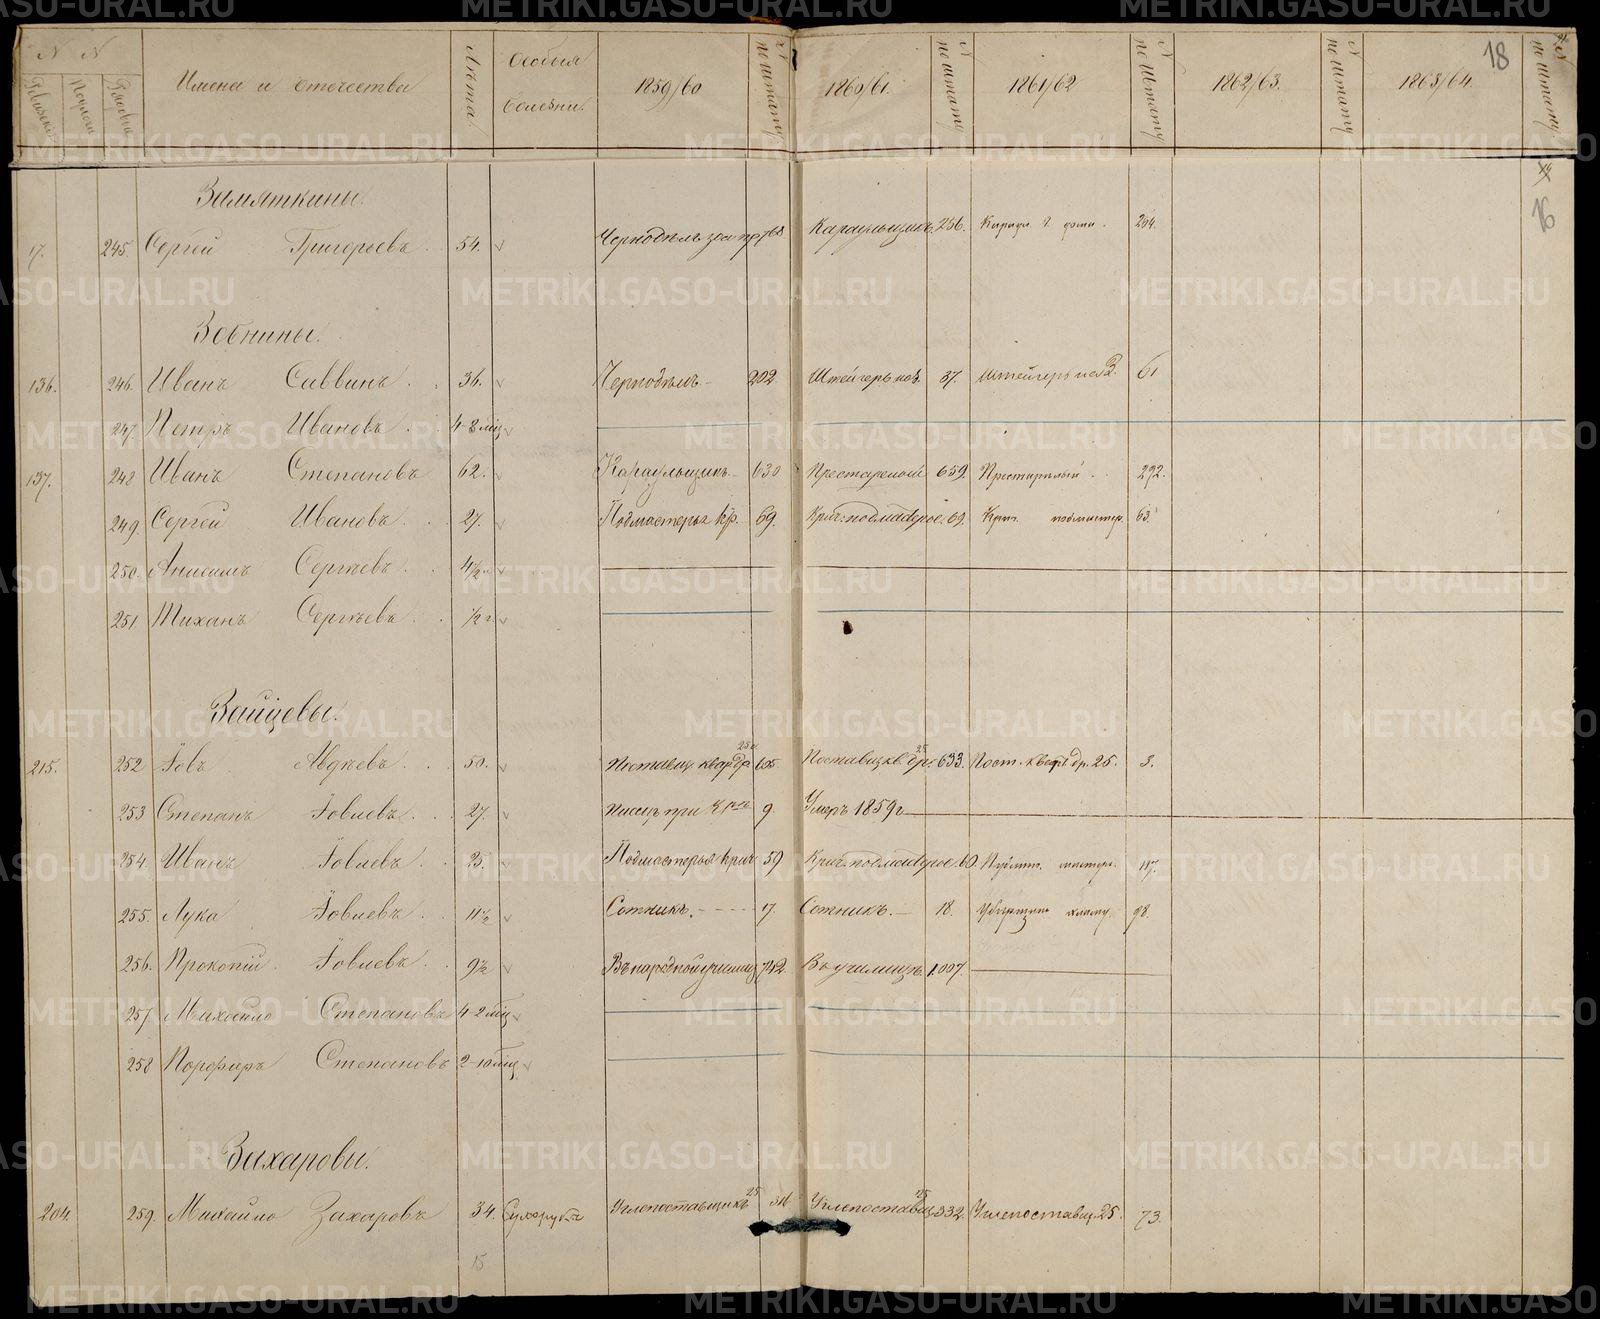 N N
Имена и отчества
Лѣта.
Особыя
болезни.
1859/60
N по штату
1860/61.
N по штату
1861/62
N по штату
1862/63.
N по штату
1863/64.
N по штату
18
16
Замяткины.
17. 245. Сергей Григорьевъ 54. Караульщикъ 256. 204.
Зобнины.
136. 246. Иванъ Саввинъ 36. Чернодѣлъ 202 Штейгеръ 37. Штейгеръ 61
247. Петръ Ивановъ 4-8 мѣц
137. 248 Иванъ Степановъ 62. Караульщикъ 630 Престарелый 659. Престарелый 292.
249. Сергей Ивановъ 27. Подмастерья кр. 69. Крич. подмастерье. 69. Крич. подмастер. 63.
250. Анисимъ Сергѣевъ 4½
251. Тиханъ Сергѣевъ ½ г
Зайцевы.
215. 252 Іовъ Авдѣевъ 50. Поставщ. квар. др 605 Поставщ. кв. др. 25 633. Пост. кварт. др. 25. 3.
253 Степанъ Іовлевъ 27. Писецъ при 9. Умеръ 1859 г
254 Иванъ Іовлевъ 25. Подмастерья крич 59 Крич. подмастерье. 60. Пудлин. мастер. 117.
255. Лука Іовлевъ 11½ Сотникъ. 17. Сотникъ. 18. 98.
256. Прокопій Іовлевъ 9½ Въ народной училищ 742. Въ училищѣ 1007.
257. Михайло Степановъ 4-2 мѣц
258 Порфиръ Степановъ 2-10 мѣц
Захаровы.
204. 259. Михайло Захаровъ 34. Сухорукъ Углепоставщикъ 25 Углепоставщ. 25 332. Углепоставщ. 25. 73.
15
METRIKI.GASO-URAL.RU